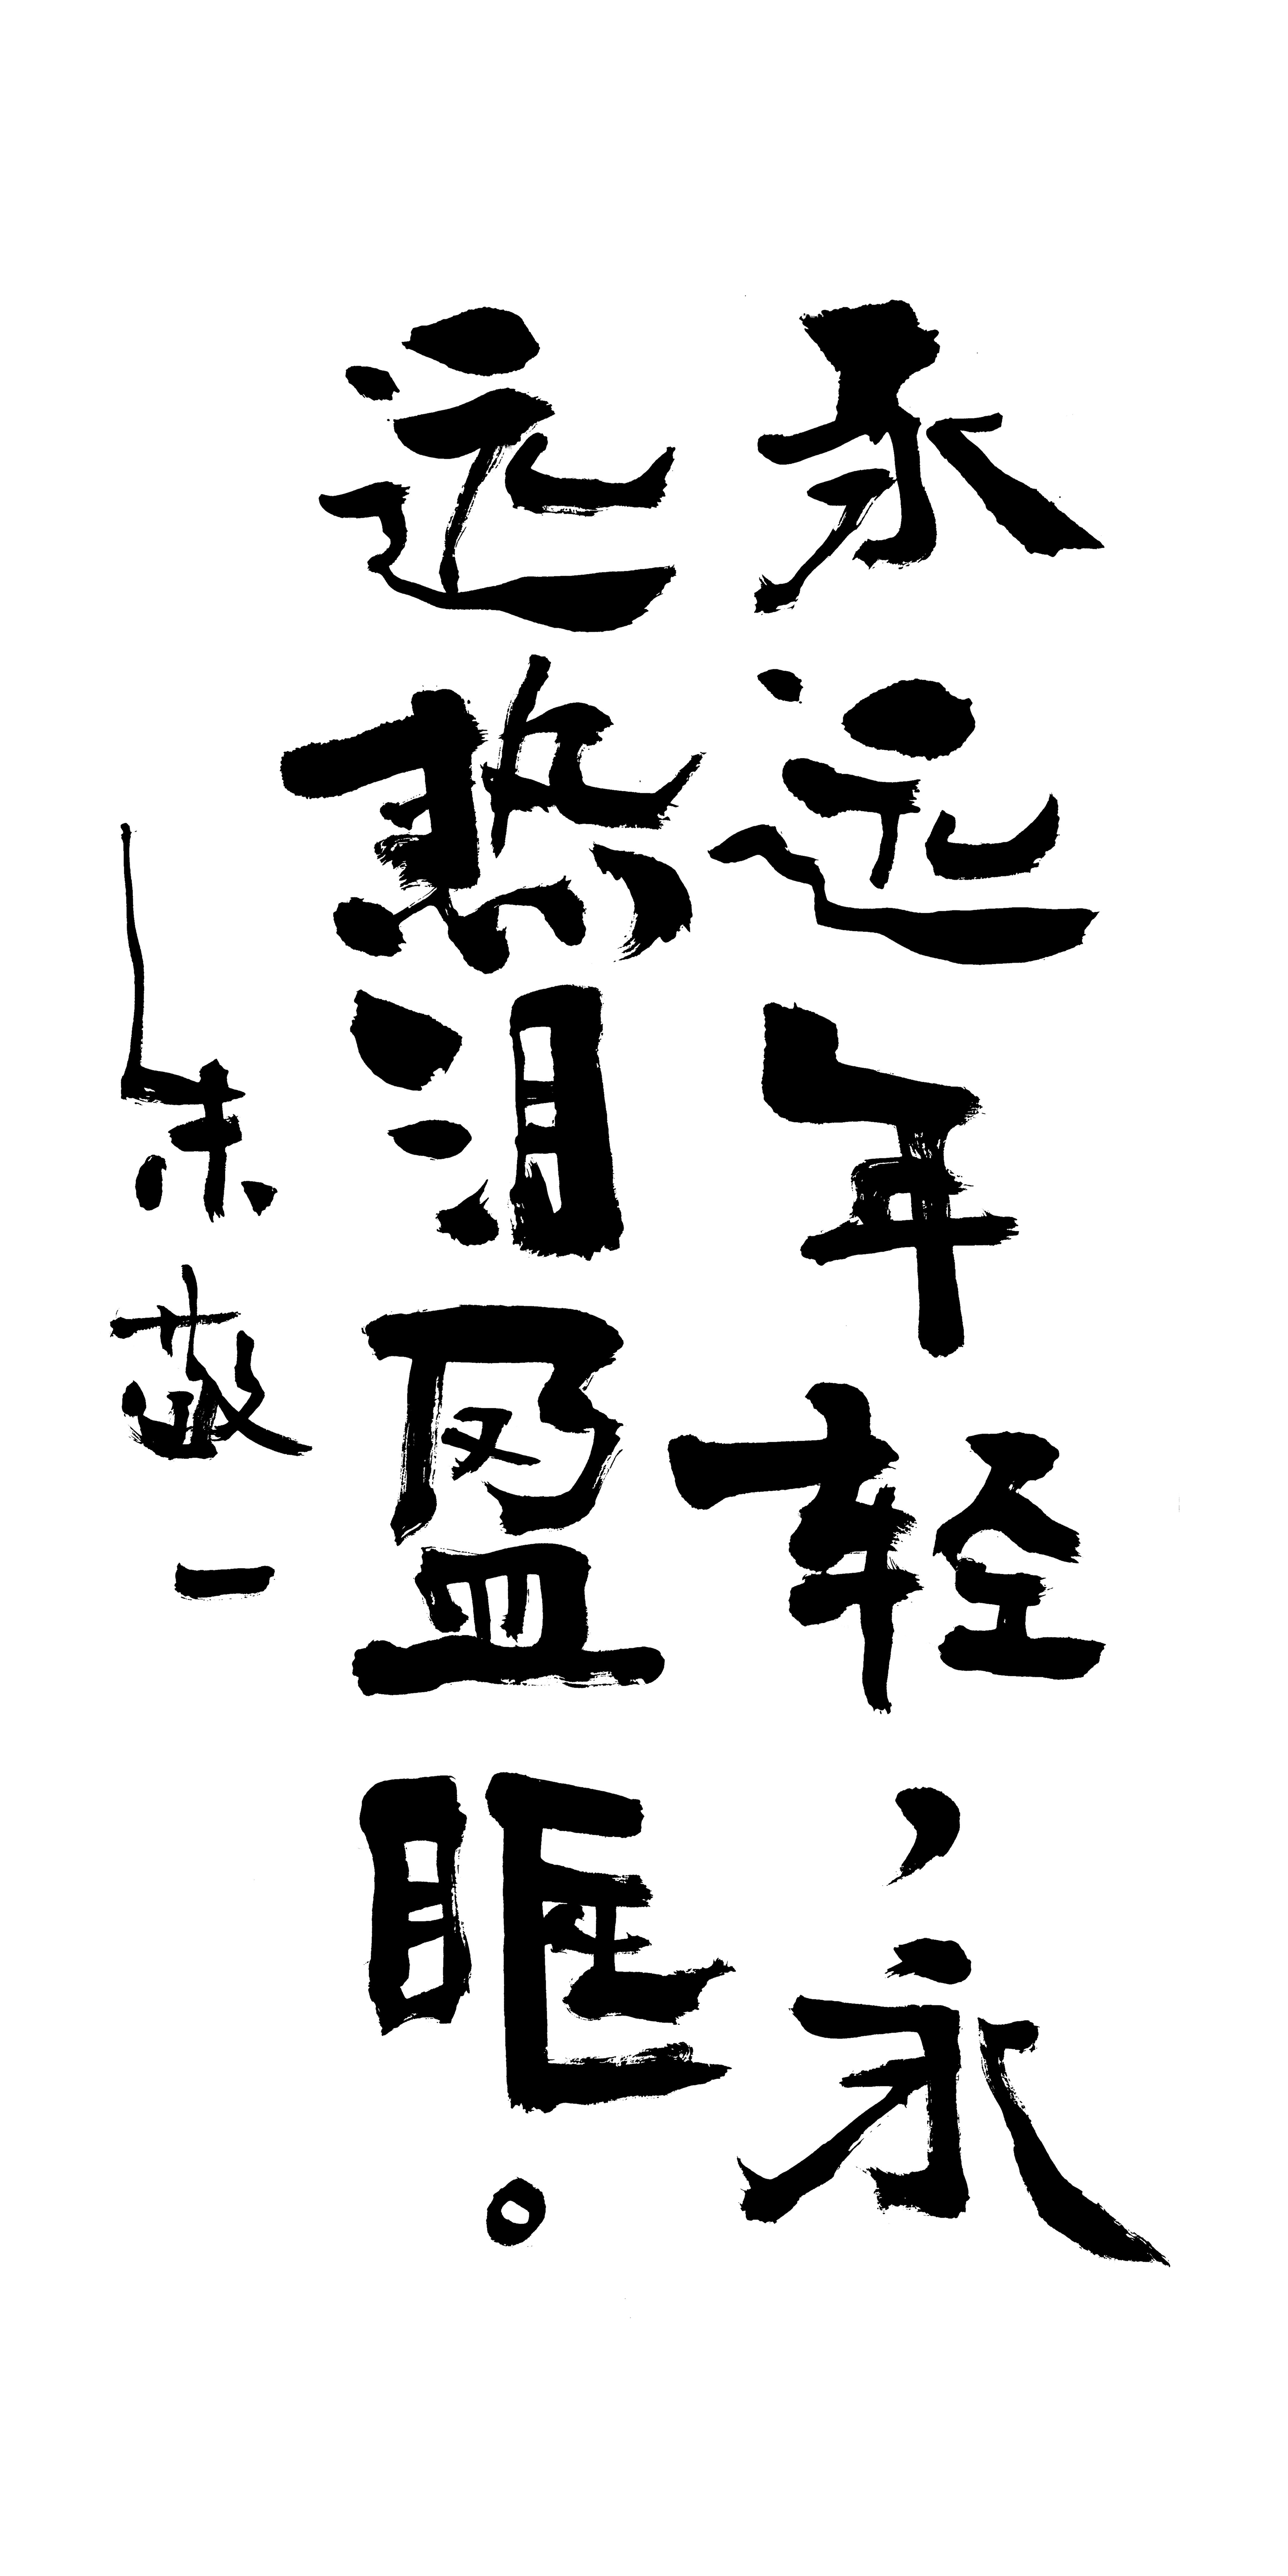 永远年轻，永
远热泪盈眶。
朱敬一